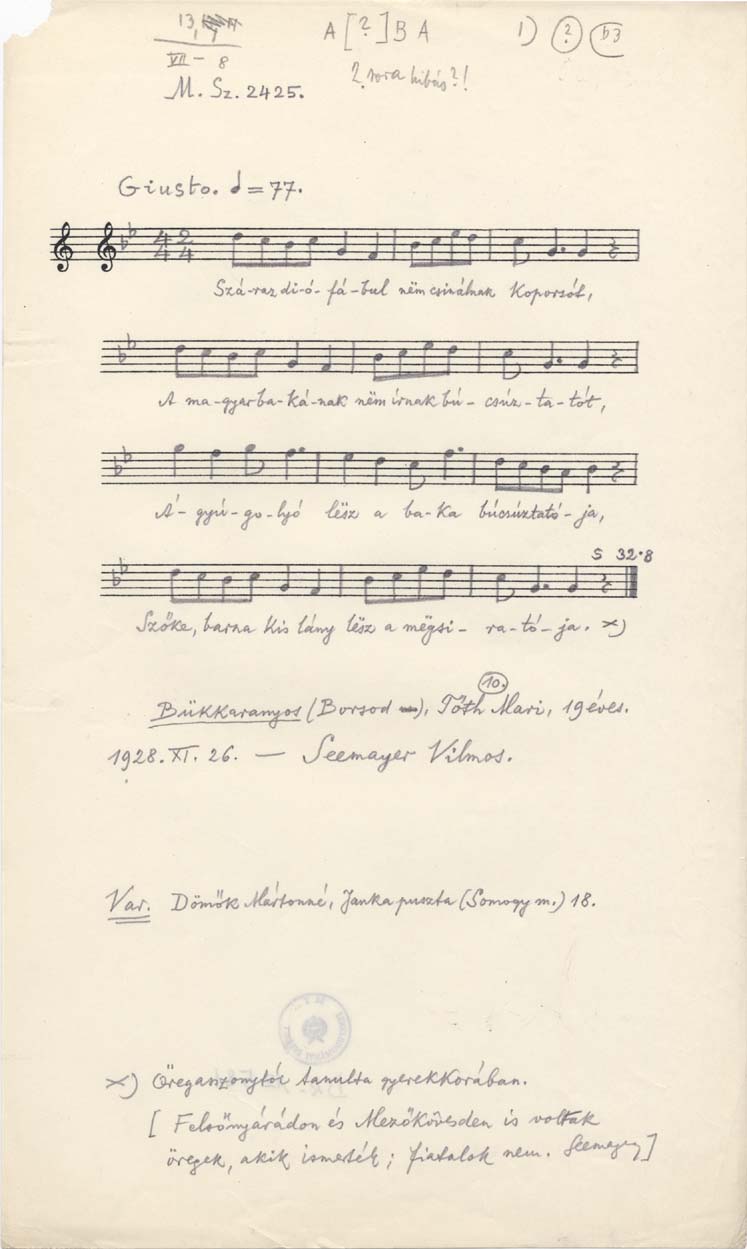 13,
A [?] B A 1) ? b3
VII - 8
2. sora hibás?!
M. Sz. 2425.
Giusto. = 77.
4 2
4 4
Szá-raz di-ó-fá-bul nëm csinálnak koporsót,
A ma-gyar ba-ká-nak nëm írnak bú-csúz-ta-tót,
Á-gyú-go-lyó lësz a ba-ka búcsúztató-ja,
S 32·8
Szőke, barna kis lány lësz a mëgsi-ra-tó-ja. x)
10.
Bükkaranyos (Borsod), Tóth Mari, 19 éves.
1928. XI. 26. — Seemayer Vilmos.
Var. Dömők Mártonné, Janka puszta (Somogy m.) 18.
x) Öregasszonytól tanulta gyerekkorában.
[ Felsőnyárádon és Mezőkövesden is voltak
öregek, akik ismerték; fiatalok nem. Seemayer]